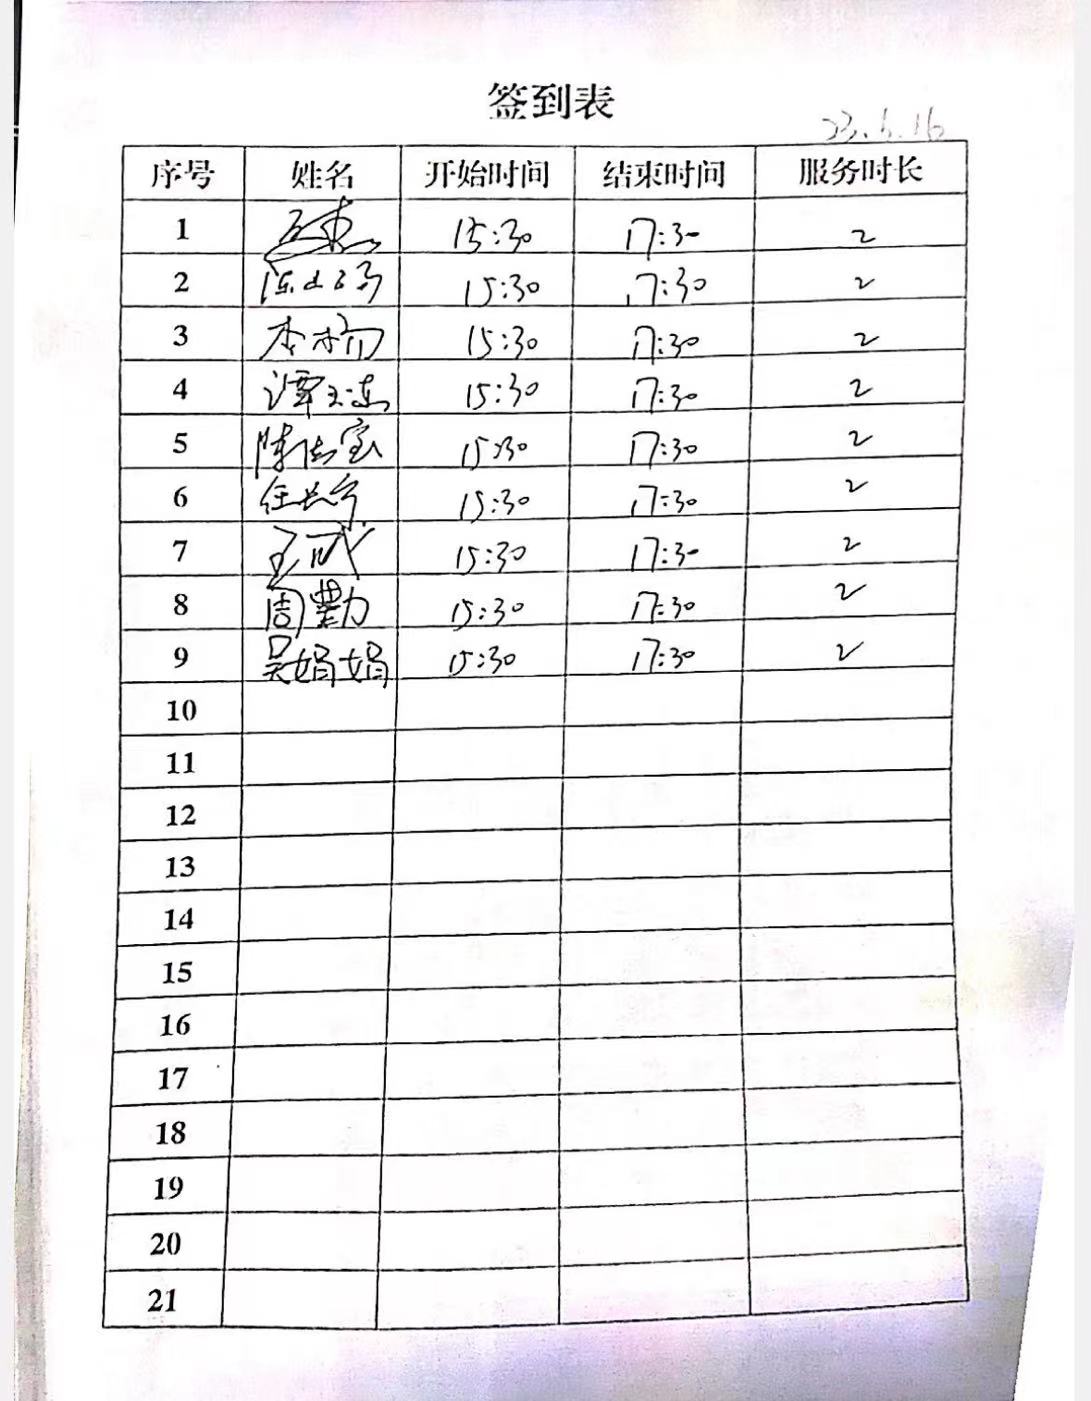 签到表
23.6.16
序号 姓名 开始时间 结束时间 服务时长
1 15:30 17:30 2
2 15:30 17:30 2
3 李 15:30 17:30 2
4 谭玉连 15:30 17:30 2
5 陈 宝 15:30 17:30 2
6 任长宁 15:30 17:30 2
7 王武 15:30 17:30 2
8 周勤 15:30 17:30 2
9 吴娟娟 15:30 17:30 2
10
11
12
13
14
15
16
17
18
19
20
21